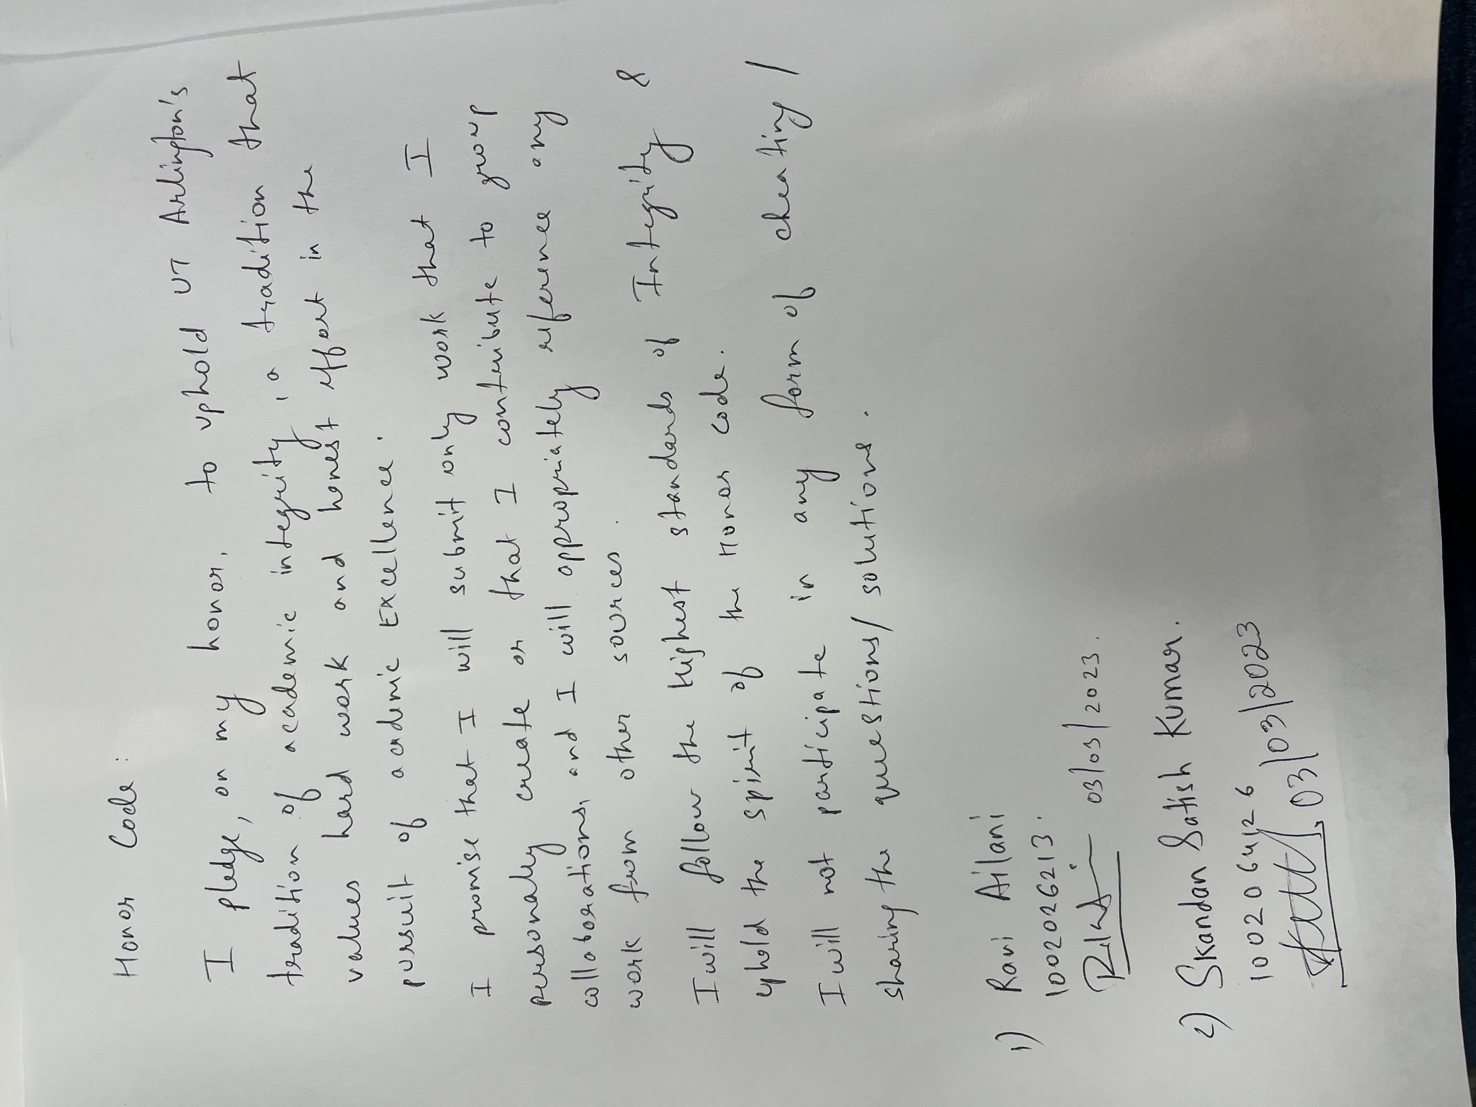 Honor Code:
I pledge, on my honor, to uphold UT Arlington's
tradition of academic integrity, a tradition that
values hard work and honest effort in the
pursuit of academic Excellence.
I promise that I will submit only work that I
personally create or that I contribute to group
collaborations, and I will appropriately reference any
work from other sources.
I will follow the Highest standards of Integrity &
uphold the spirit of the Honor code.
I will not participate in any form of cheating /
sharing the questions/ solutions.
1) Ravi Ailani
1002026213.
03/03/2023.
2) Skandan Satish Kumar.
1002064126
03/03/2023